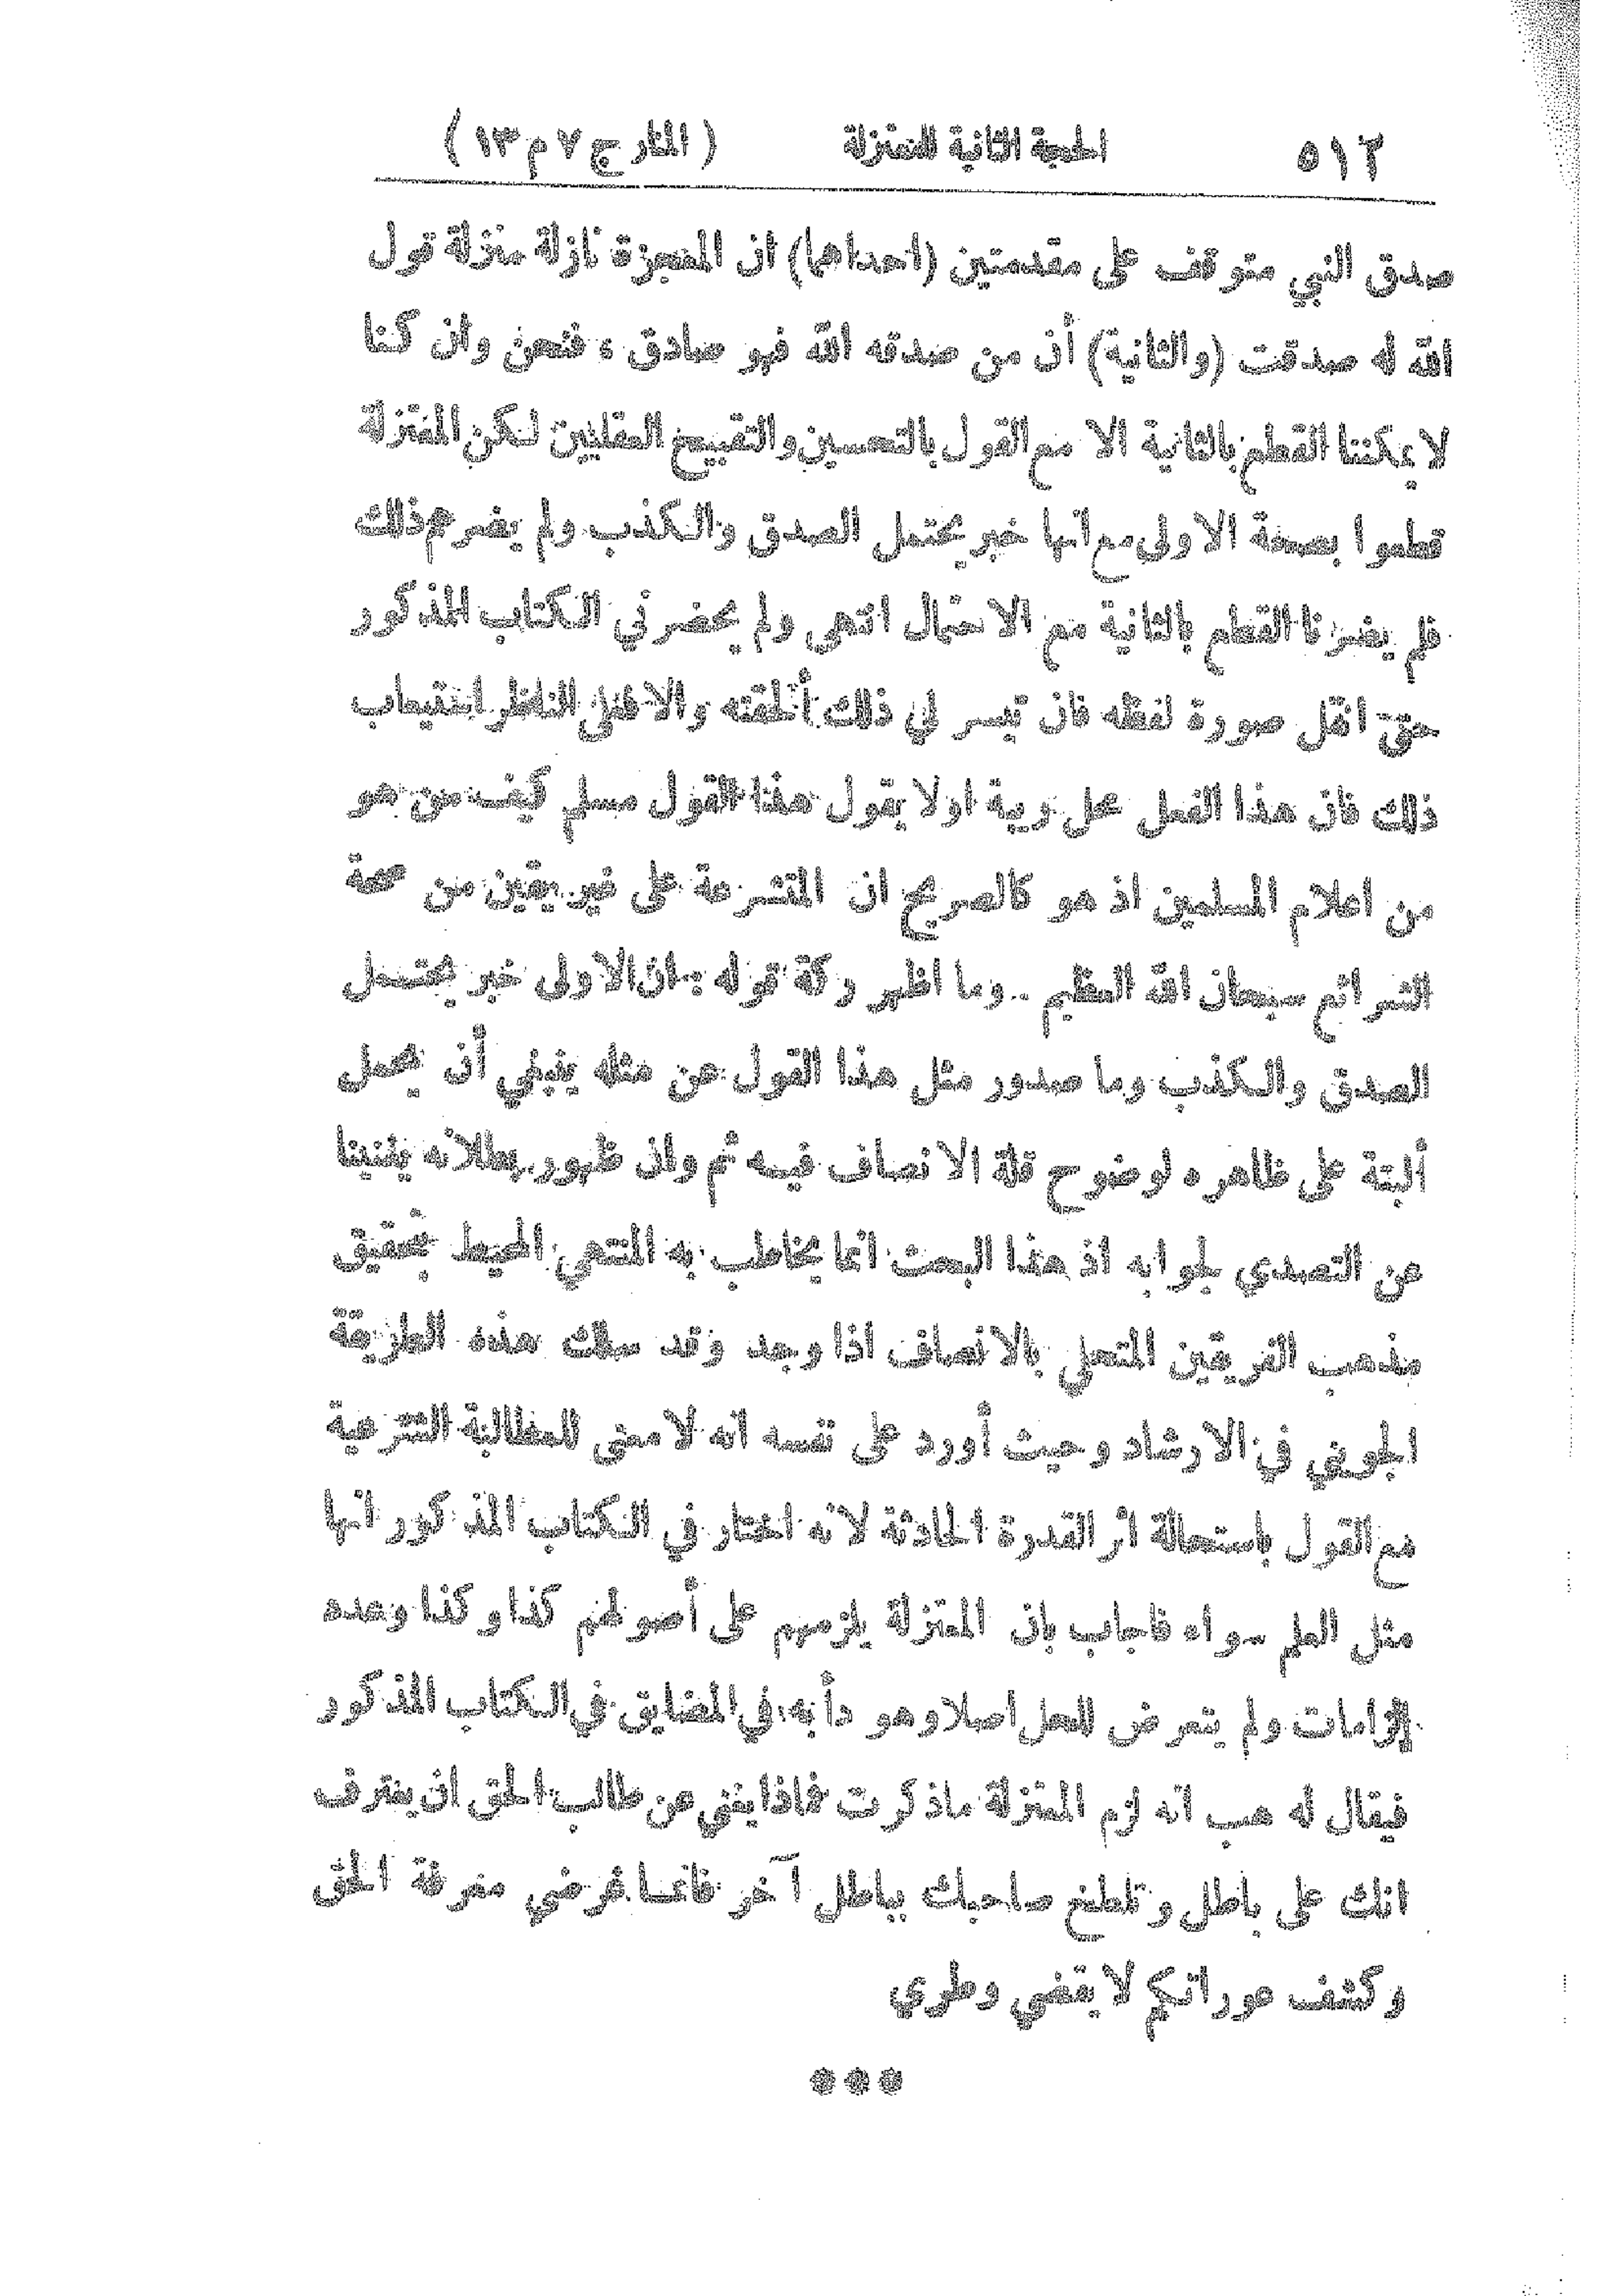 ٥١٢ الحجة الثانية للمعتزلة ( المنار ج ٧ م ١٣ )
صدق النبي متوقف على مقدمتين (احداهما) ان المعجزة نازلة منزلة قول
الله له صدقت (والثانية) أن من صدقه الله فهو صادق ، فنحن وان كنا
لا يمكننا القطع بالثانية الا مع القول بالتحسين والتقبيح العقليين لكن المعتزلة
قطعوا بصحة الاولى مع انها خبر يحتمل الصدق والكذب ولم يضرهم ذلك
فلم يضرنا القطع بالثانية مع الاحتمال انتهى ولم يحضرني الكتاب المذكور
حتى انقل صورة لفظه فان تيسر لي ذلك ألحقته والا فعلى الناظر
ذلك فان هذا الفعل محل ريبة اولا يقول هذا القول مسلم كيف من هو
من اعلام المسلمين اذ هو كالصريح ان المتشرعة على غير يقين من صحة
الشرائع سبحان الله العظيم .. وما اظهر ركة قوله : ان الاولى خبر يحتمل
الصدق والكذب وما صدور مثل هذا القول عن مثله ينبغي أن يحمل
ألبتة على ظاهره لوضوح قلة الانصاف فيه ثم وان ظهور بطلانه يغنينا
عن التصدي لجوابه اذ هذا البحث انما يخاطب به المنتهي المحيط بتحقيق
مذهب الفريقين المتحلي بالانصاف اذا وجد وقد سلك هذه الطريقة
الجويني في الارشاد وحيث أورد على نفسه انه لا معنى للمطالبة الشرعية
مع القول باستحالة اثر القدرة الحادثة لانه اختار في الكتاب المذكور انها
مثل العلم سواء فاجاب بان المعتزلة يلزمهم على أصولهم كذا وكذا وعده
إلزامات ولم يتعرض للحل اصلا وهو دأبه في المضايق في الكتاب المذكور
فيقال له هب انه لزم المعتزلة ما ذكرت فماذا يغني عن طالب الحق ان يعترف
انك على باطل وتلطخ صاحبك بباطل آخر فانما غرضي معرفة الحق
وكشف عوراتكم لا يقضي وطري
***